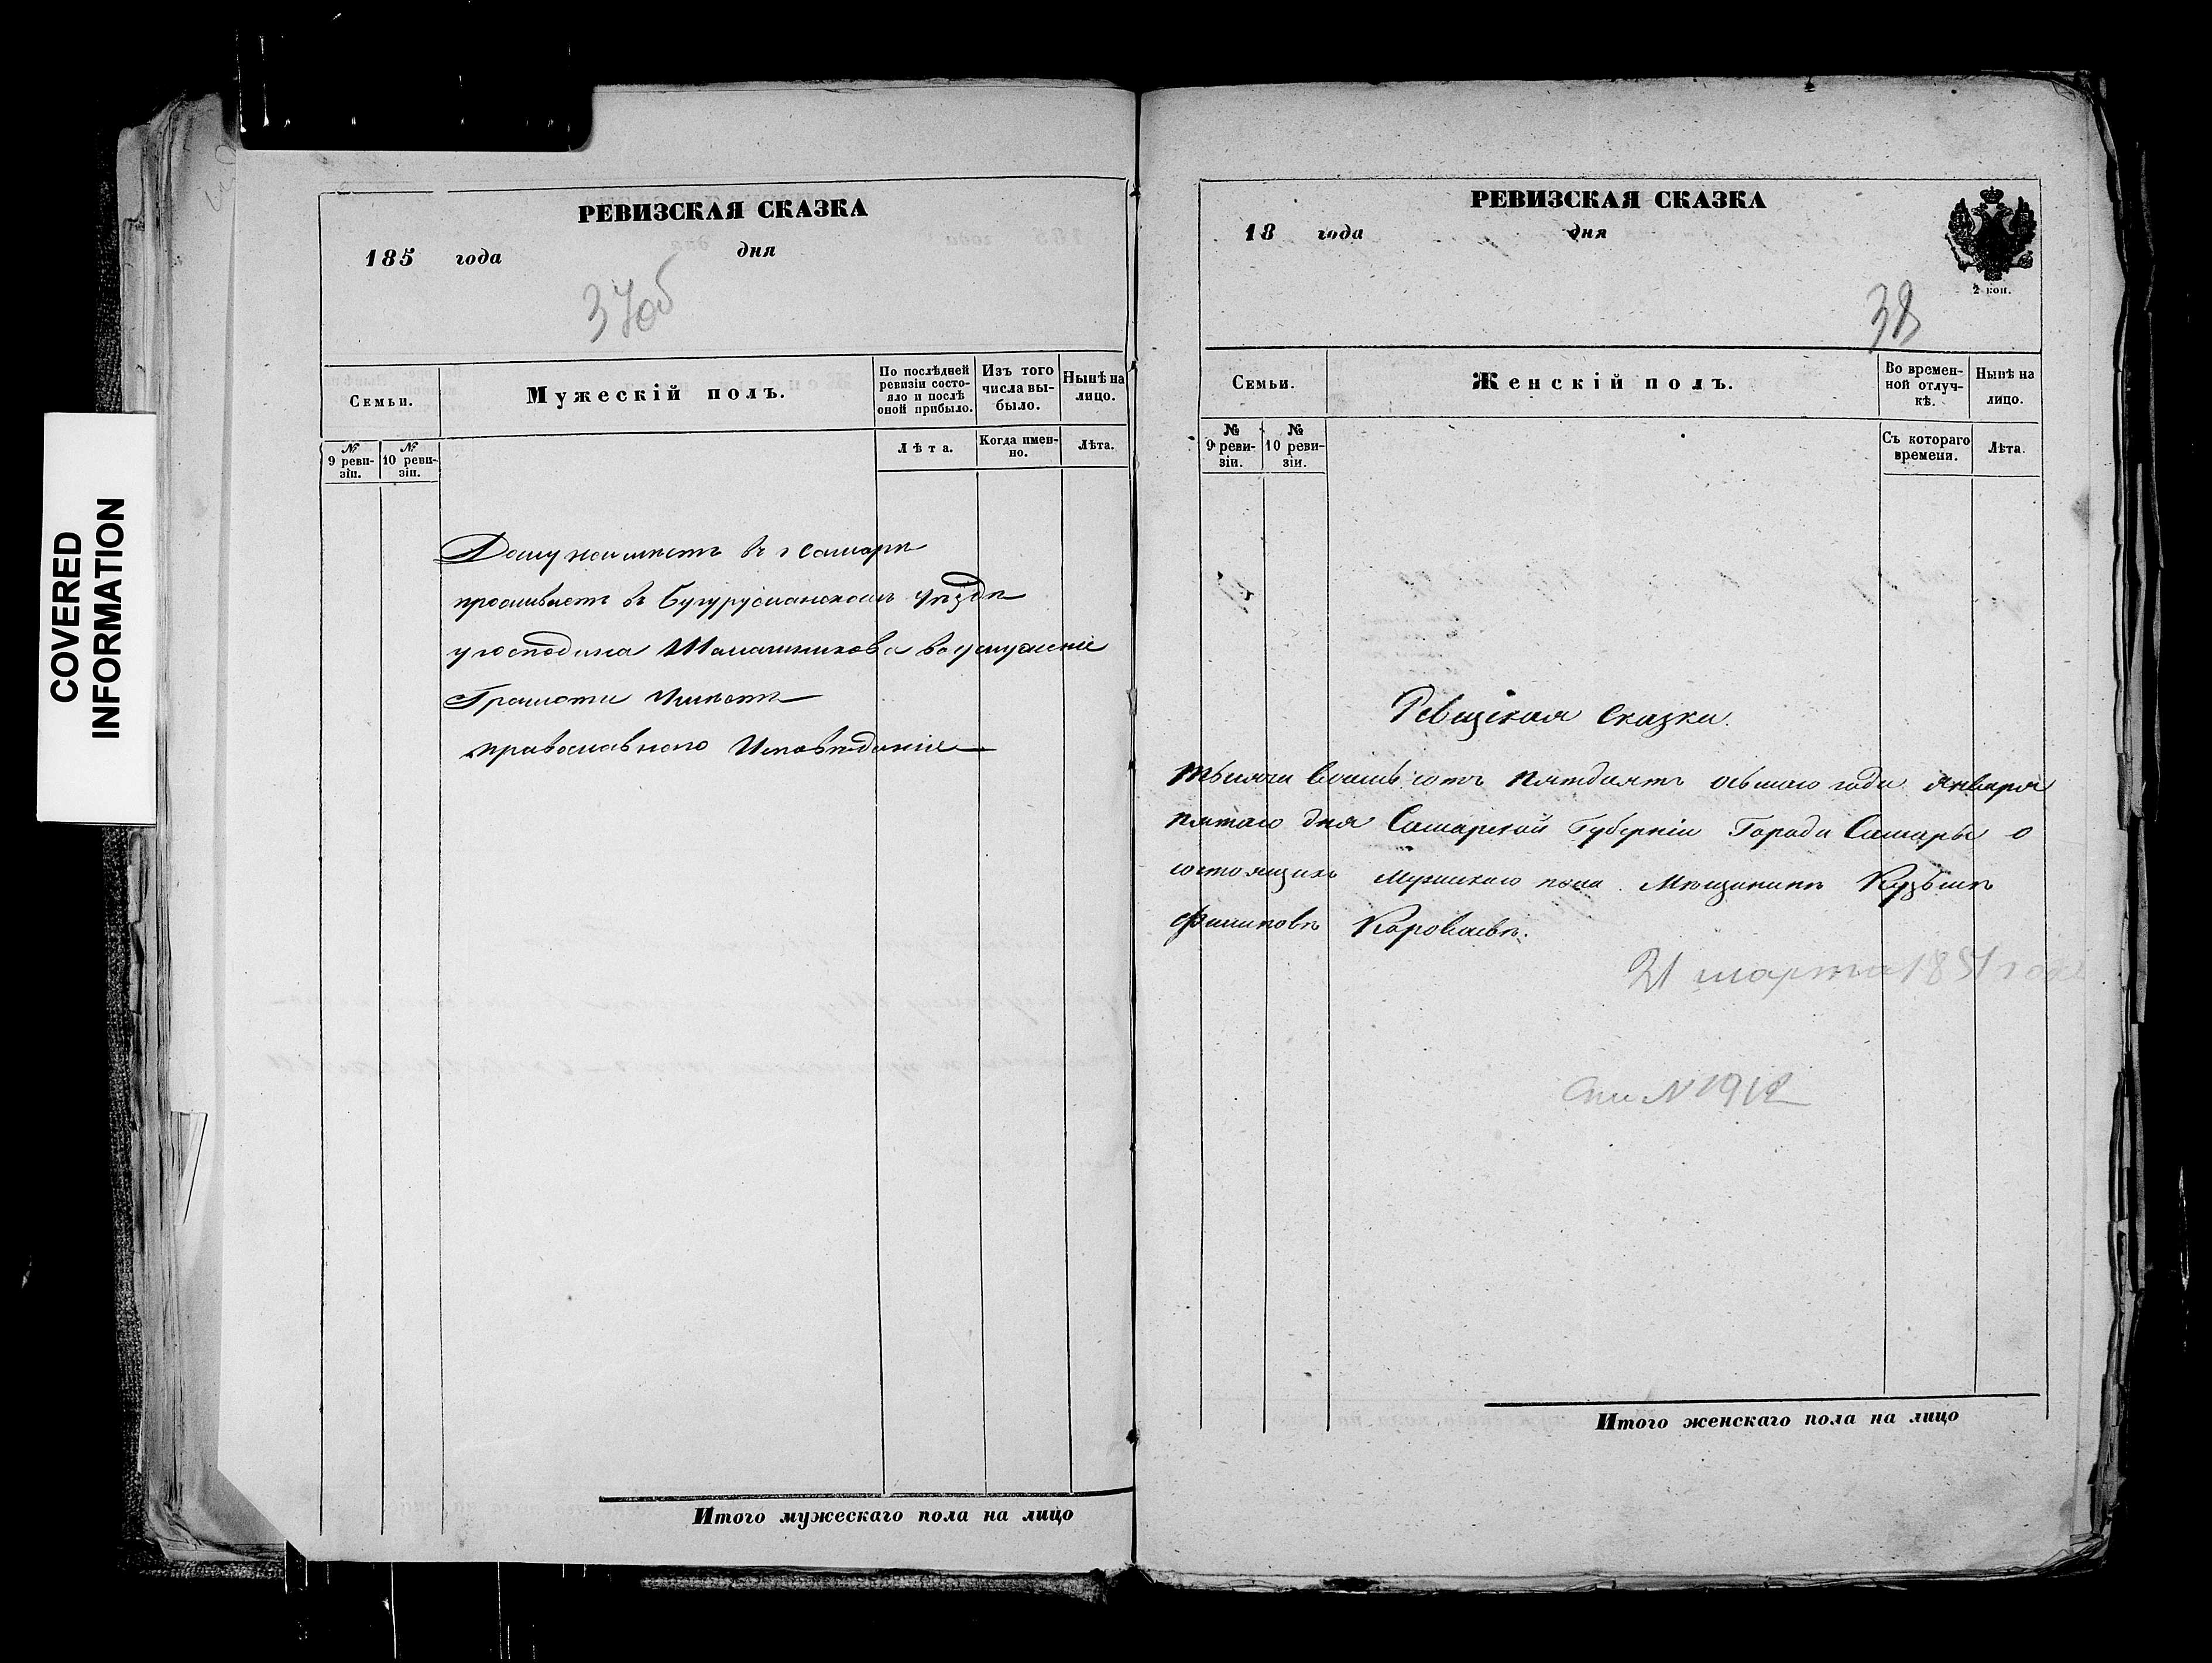 COVERED
INFORMATION
РЕВИЗСКАЯ СКАЗКА
185 года дня
37об
Семьи.
Мужескій полъ.
По послѣдней ревизіи состояло и послѣ оной прибыло.
Изъ того числа выбыло.
Нынѣ на лицо.
№ 9 ревизіи.
№ 10 ревизіи.
Лѣта.
Когда именно.
Лѣта.
Дому неимѣетъ въ г Самарѣ
проживаетъ въ Бугурусланскомъ уѣздѣ
у господина Шалашникова воуслуженіе
Грамоти Имѣетъ
православнаго Исповѣданія
Итого мужескаго пола на лицо
РЕВИЗСКАЯ СКАЗКА
18 года дня
2 коп.
38
Семьи.
Женскій полъ.
Во временной отлучкѣ.
Нынѣ на лицо.
№ 9 ревизіи.
№ 10 ревизіи.
Съ котораго времени.
Лѣта.
Ревизская сказка.
тысяча восемь сотъ пятдѣятъ осьмаго года Января
пятаго дня Самарской Губерніи Города Самары о
состоящихъ Мужскаго пола. Мѣщанинѣ Кузьмѣ
Филиповѣ Короваевѣ.
21 марта 1851 года
№ 1912
Итого женскаго пола на лицо